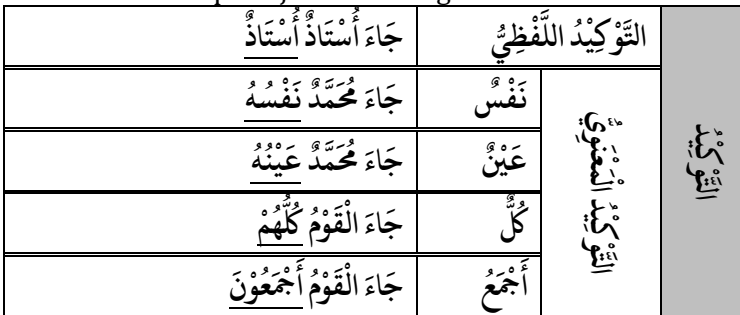 التَّوْكِيْدُ
التَّوْكِيْدُ اللَّفْظِيُّ
جَاءَ أُسْتَاذٌ أُسْتَاذٌ
التَّوْكِيْدُ الْمَعْنَوِيُّ
نَفْسٌ
جَاءَ مُحَمَّدٌ نَفْسُهُ
عَيْنٌ
جَاءَ مُحَمَّدٌ عَيْنُهُ
كُلٌّ
جَاءَ الْقَوْمُ كُلُّهُمْ
أَجْمَعُ
جَاءَ الْقَوْمُ أَجْمَعُوْنَ